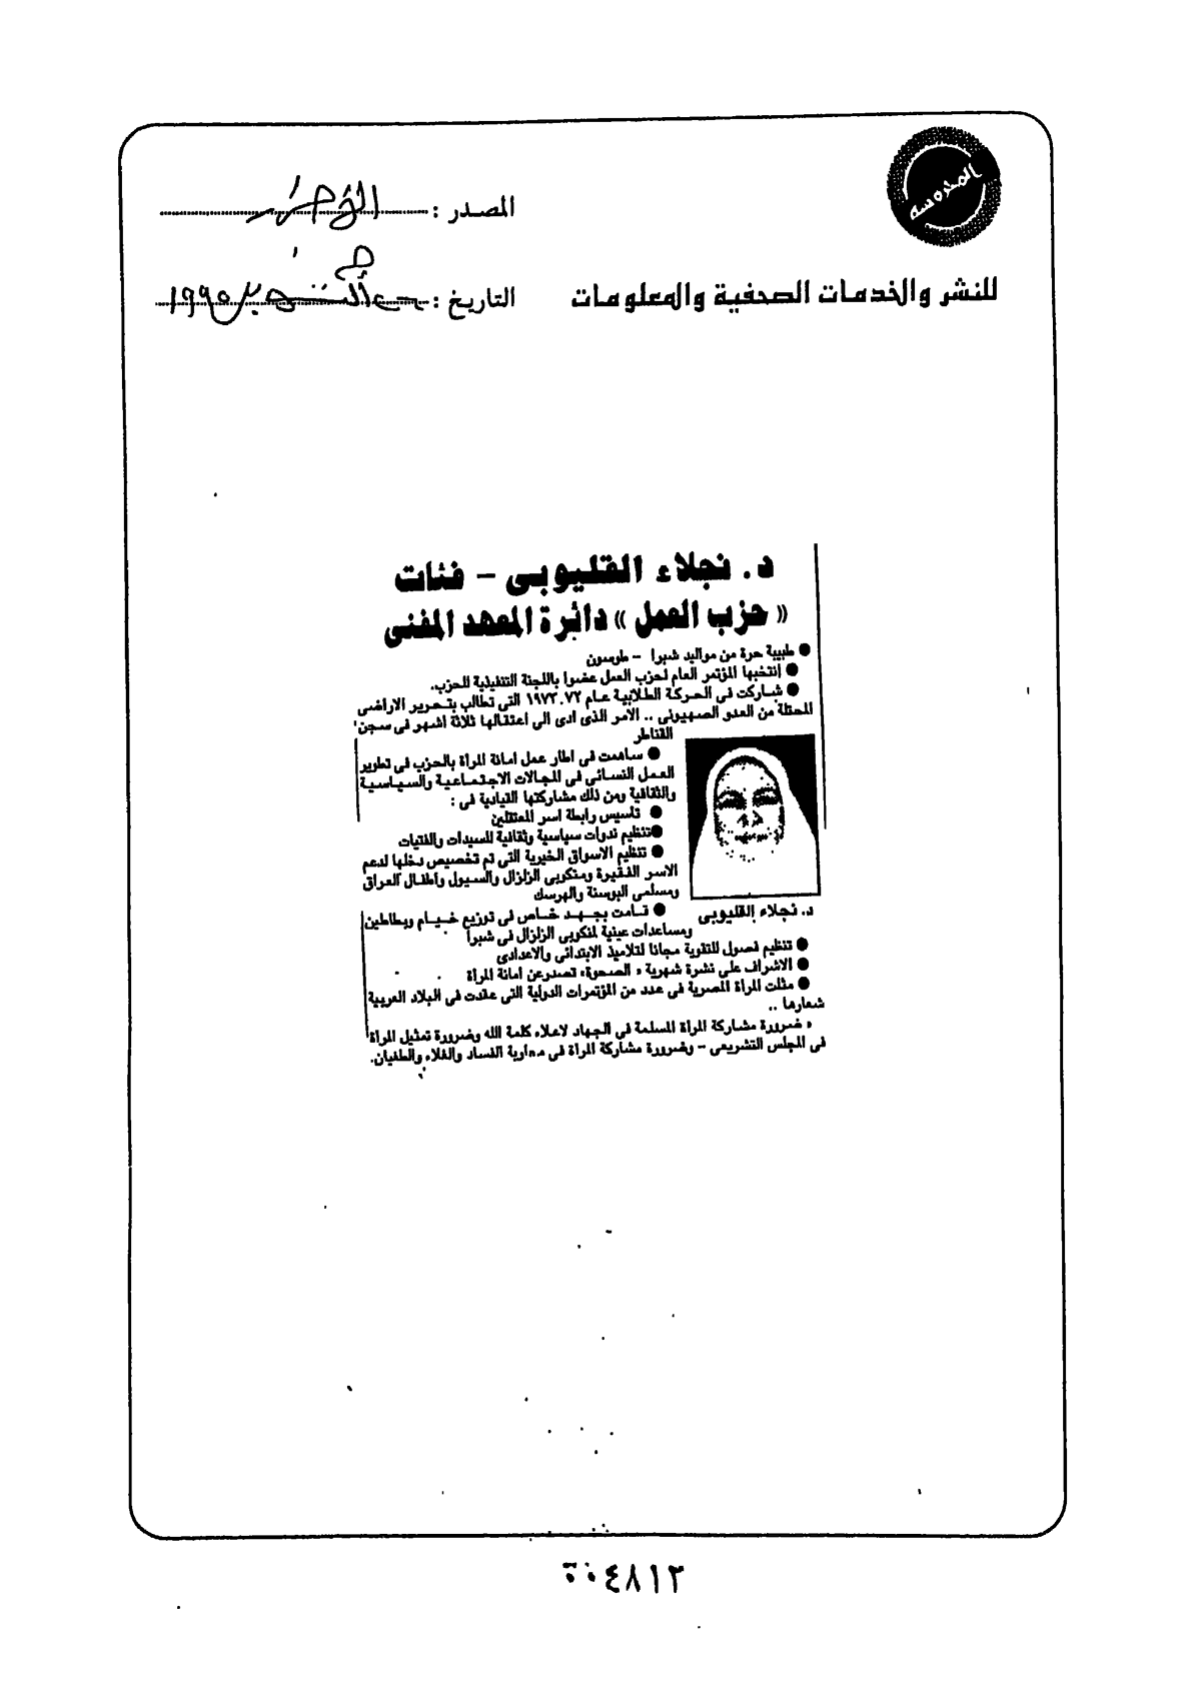 المحروسة
المصدر :
التاريخ : أكتوبر ١٩٩٥
للنشر والخدمات الصحفية والمعلومات
د. نجلاء القليوبى – فئات
« حزب العمل » دائرة المعهد الفنى
● طبيبة حرة من مواليد شبرا – طوسون
● إنتخبها المؤتمر العام لحزب العمل عضوا باللجنة التنفيذية للحزب.
● شاركت فى الحركة الطلابية عام ٧٢، ١٩٧٣ التى تطالب بتحرير الاراضى
المحتلة من العدو الصهيونى .. الأمر الذى ادى الى اعتقالها ثلاثة اشهر فى سجن
القناطر
● ساهمت فى اطار عمل امانة المرأة بالحزب فى تطوير
العمل النسائى فى المجالات الاجتماعية والسياسية
والثقافية ومن ذلك مشاركتها القيادية فى :
● تاسيس رابطة اسر المعتقلين
● تنظيم ندوات سياسية وثقافية للسيدات والفتيات
● تنظيم الاسواق الخيرية التى تم تخصيص دخلها لدعم
الاسر الفقيرة ومنكوبى الزلزال والسيول واطفال العراق
ومسلمى البوسنة والهرسك
● قامت بجهد خاص فى توزيع خيام وبطاطين
ومساعدات عينية لمنكوبى الزلزال فى شبرا
د. نجلاء القليوبى
● تنظيم فصول للتقوية مجانا لتلاميذ الابتدائى والاعدادى
● الاشراف على نشرة شهرية « الصحوة» تصدر عن امانة المرأة
● مثلت المرأة المصرية فى عدد من المؤتمرات الدولية التى عقدت فى البلاد العربية
شعارها ..
« ضرورة مشاركة المرأة المسلمة فى الجهاد لاعلاء كلمة الله وضرورة تمثيل المرأة
فى المجلس التشريعى – وضرورة مشاركة المرأة فى محاربة الفساد والغلاء والطغيان.
٤٨١٢